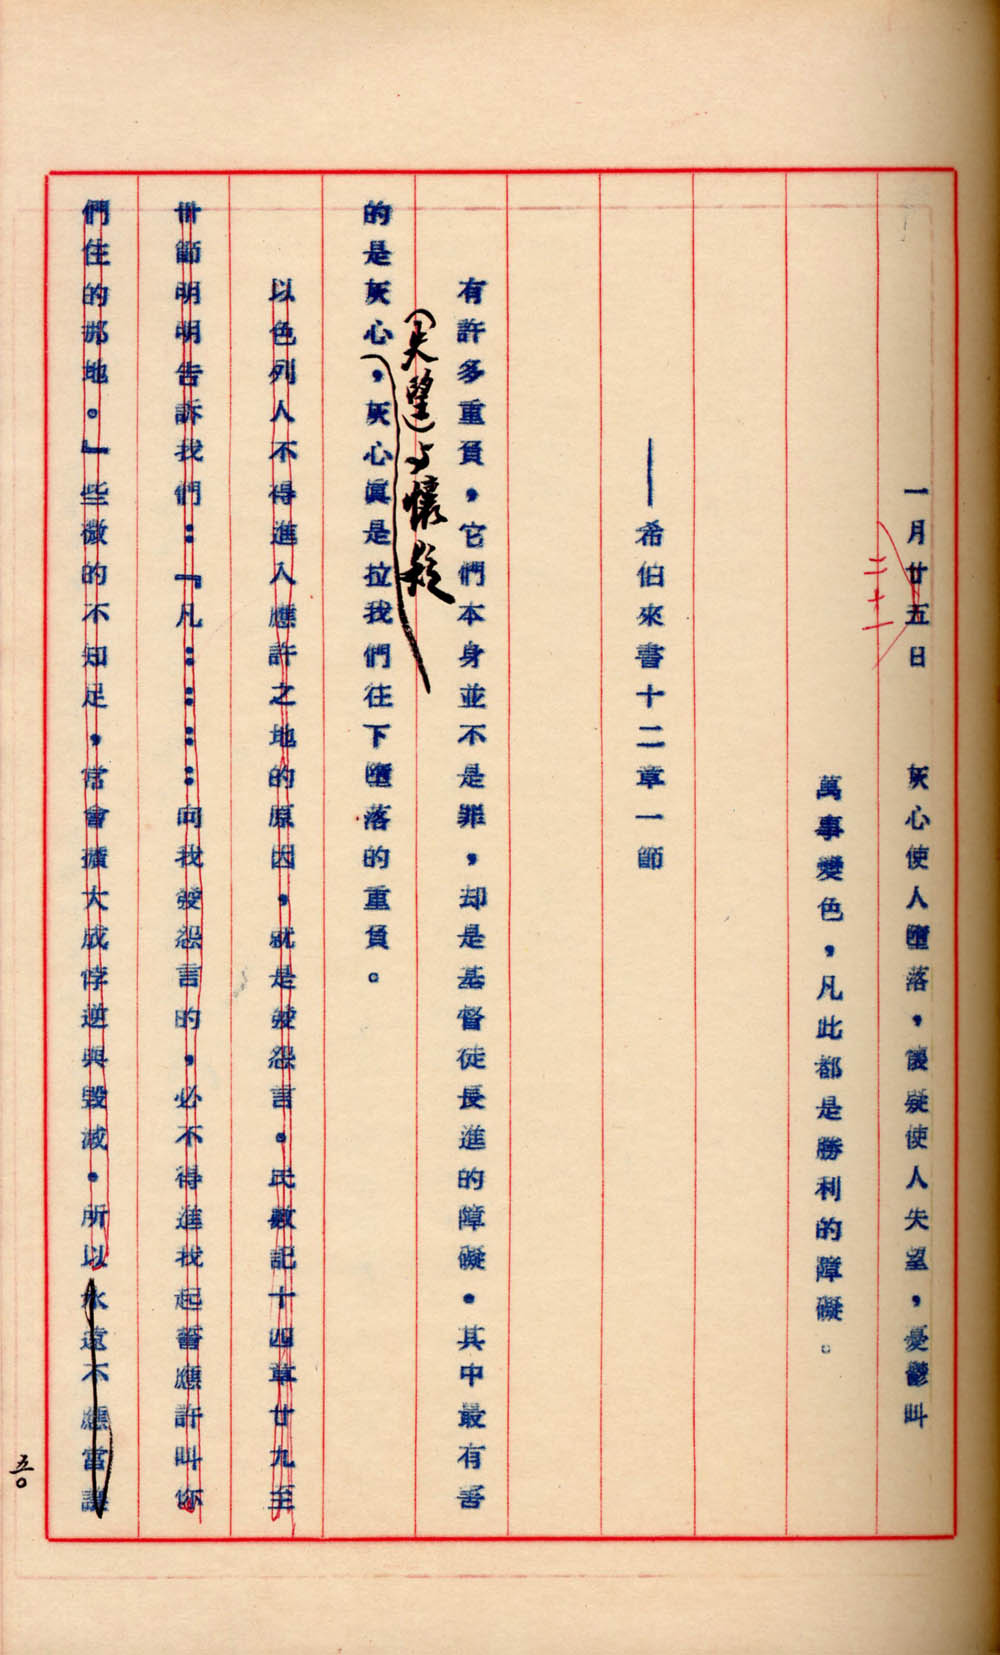 一月廿五日　灰心使人墮落，懷疑使人失望，憂鬱叫
二十一
萬事變色，凡此都是勝利的障礙。
——希伯來書十二章一節
有許多重負，它們本身並不是罪，却是基督徒長進的障礙。其中最有害
（失望）与懷疑
的是灰心，灰心眞是拉我們往下墮落的重負。
以色列人不得進入應許之地的原因，就是發怨言。民數記十四章廿九至
卅節明明告訴我們：『凡……向我發怨言的，必不得進我起誓應許叫你
們住的那地。』些微的不知足，常會擴大成悖逆與毀滅。所以永遠不應當讓
五〇